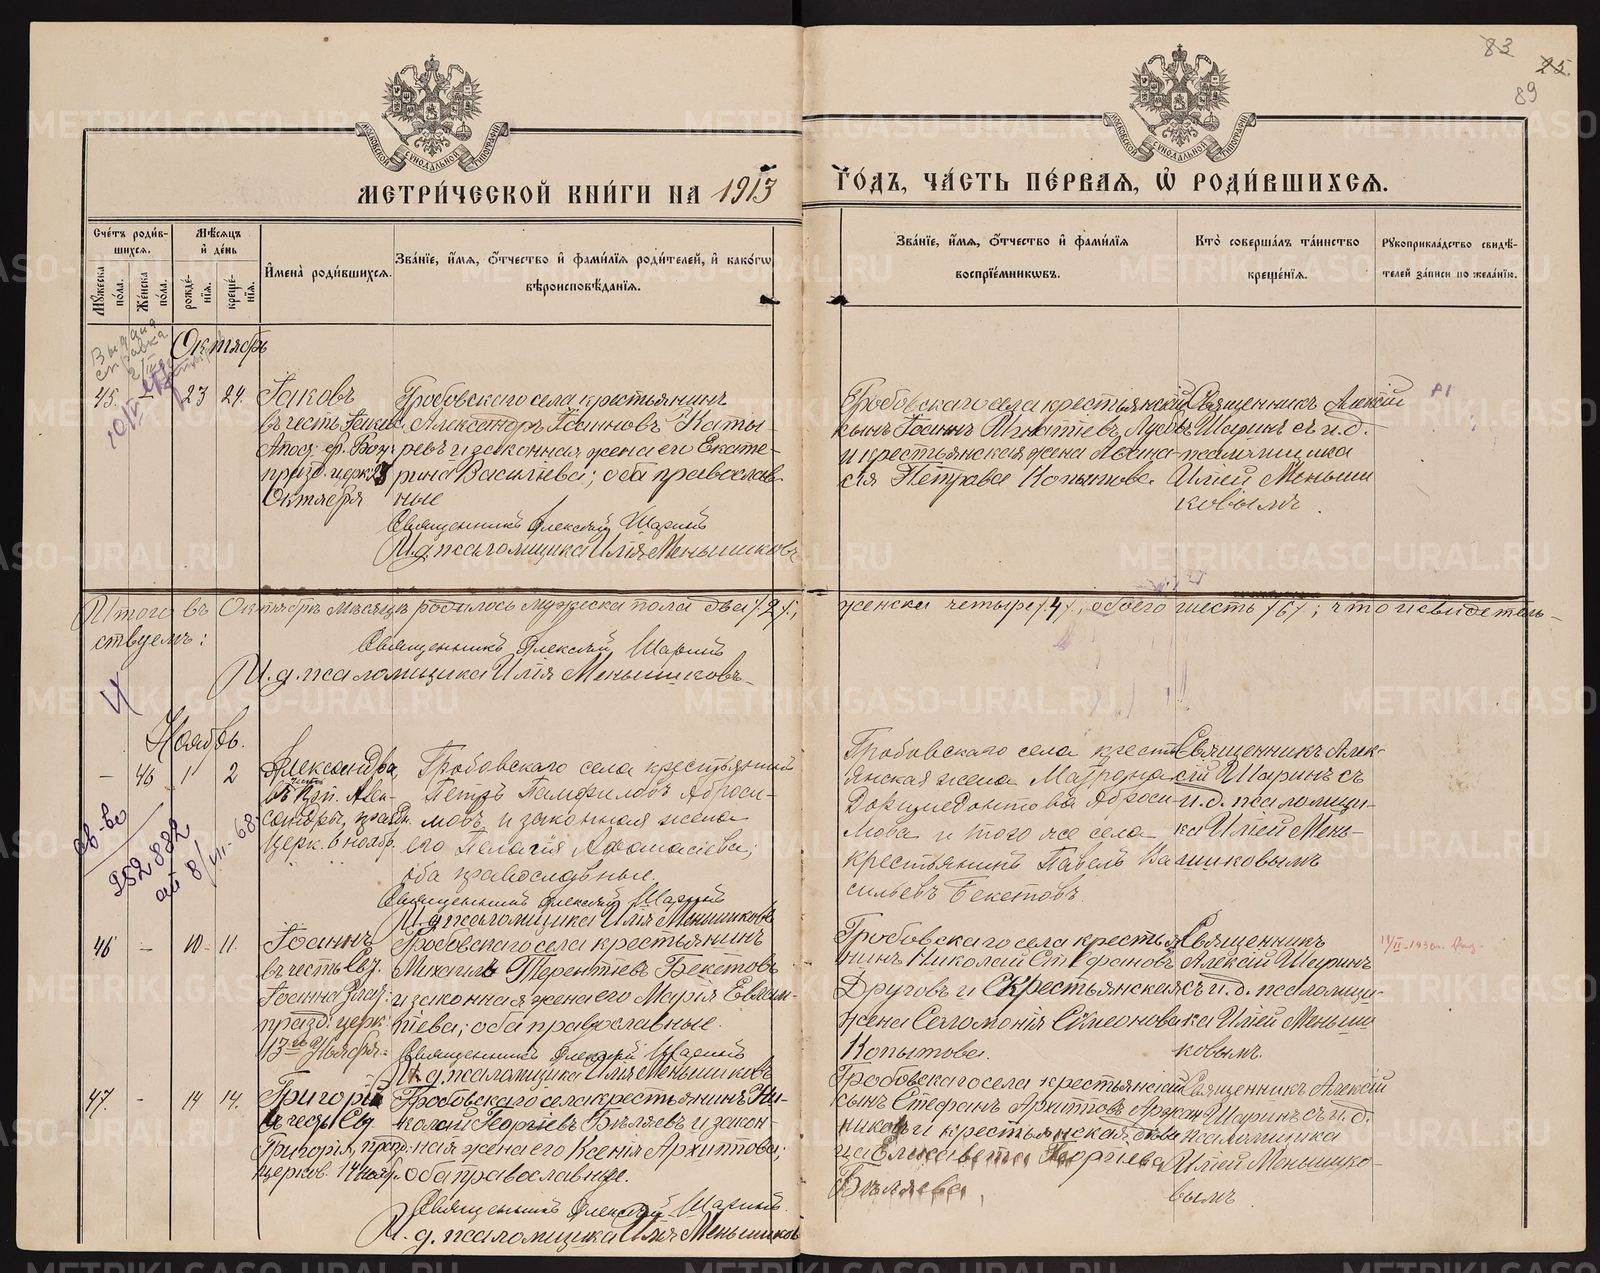 83
25.
89
МОСКОВСКОЙ СѴНОДАЛЬНОЙ ТИПОГРАФІИ
МОСКОВСКОЙ СѴНОДАЛЬНОЙ ТИПОГРАФІИ
МЕТРИ́ЧЕСКОЙ КНИ́ГИ НА 1913
ГО́ДЪ, ЧА́СТЬ ПЕ́РВАЯ, Ѡ РОДИ́ВШИХСЯ.
Сче́тъ роди́в-
шихся.
Му́жеска по́ла.
Же́нска по́ла.
Мѣ́сяцъ
и де́нь
рожде́-
нія.
креще́-
нія.
Имена̀ роди́вшихся.
Зва́ніе, и́мя, о́тчество и фами́лія роди́телей, и како́гѡ
вѣроисповѣ́данія.
Зва́ніе, и́мя, о́тчество и фами́лія
воспріе́мниковъ.
Кто̀ соверша́лъ та́инство
креще́нія.
Рукоприкла́дство свидѣ́-
телей за́писи по жела́нію.
Выдана
справка
Октябрь
45.
–
23
24.
Іаковъ
въ честь Іакова,
Апост. бр. Бож.
празд. церк. 23
Октября
Гробовскаго села крестьянинъ
Александръ Іоанновъ Каты-
ревъ и законная жена его Екате-
рина Васильева; оба православ-
ные
Священникъ Алексій Шаринъ
И. д. псаломщика Илія Меньшиковъ
Гробовскаго села крестьянскій
сынъ Іоаннъ Игнатіевъ Лусовъ
и крестьянская жена Агаѳа-
кія Петрова Копытова.
Священникъ Алексій
Шаринъ съ и. д.
псаломщика
Иліей Меньши
ковымъ.
Итого въ Октябрѣ мѣсяцѣ родилось мужеска пола два /2/;
женска четыре /4/, обоего шесть /6/; что и свидетель-
ствуемъ:
Священникъ Алексій Шаринъ
И. д. псаломщика Илія Меньшиковъ
Ноябрь.
–
46
1
2
Александра,
въ честь
церк. 6 ноябр.
Гробовскаго села крестьянинъ
Петръ Памфиловъ Аброси-
мовъ и законная жена
его Пелагія Аѳанасіева;
оба православные.
Священникъ Алексій Шаринъ
И. д. псаломщика Илія Меньшиковъ
Гробовскаго села кресть-
янская жена Матрона
Доримедонтова Аброси-
мова и того же села
крестьянинъ Павелъ Ва-
сильевъ Бекетовъ.
Священникъ Алек-
сій Шаринъ съ
и. д. псаломщи-
ка Иліей Мень-
шиковымъ
св-во
982882
46
–
10
11.
Іоаннъ
въ честь Свят.
Іоанна Злат.
празд. церк.
13го Ноября.
Гробовскаго села крестьянинъ
Михаилъ Терентіевъ Бекетовъ
и законная жена его Марія Евлам-
піева; оба православные.
Священникъ Алексій Шаринъ
И. д. псаломщика Илія Меньшиковъ
Гробовскаго села крестья-
нинъ Николай Стефановъ
Друговъ и Крестьянская
жена Саломонія Симеонова
Копытова.
Священникъ
Алексій Шаринъ
съ и. д. псаломщи-
ка Иліей Меньши
ковымъ.
47.
–
14
14.
Григорій
въ честь Св.
Григорія, празд.
церков. 14 нояб.
Гробовскаго села крестьянинъ Ни-
колай Георгіевъ Бѣляевъ и закон-
ная жена его Ксенія Архиппова;
оба православные.
Священникъ Алексій Шаринъ.
И. д. псаломщика Илія Меньшиковъ
Гробовскаго села крестьянскій
сынъ Стефанъ Архипповъ Аржан
никовъ и крестьянская дѣви
ца Елисавета Георгіева
Бѣляева.
Священникъ Алексій
Шаринъ съ и. д.
псаломщика
Иліей Меньшико-
вымъ
METRIKI.GASO-URAL.RU